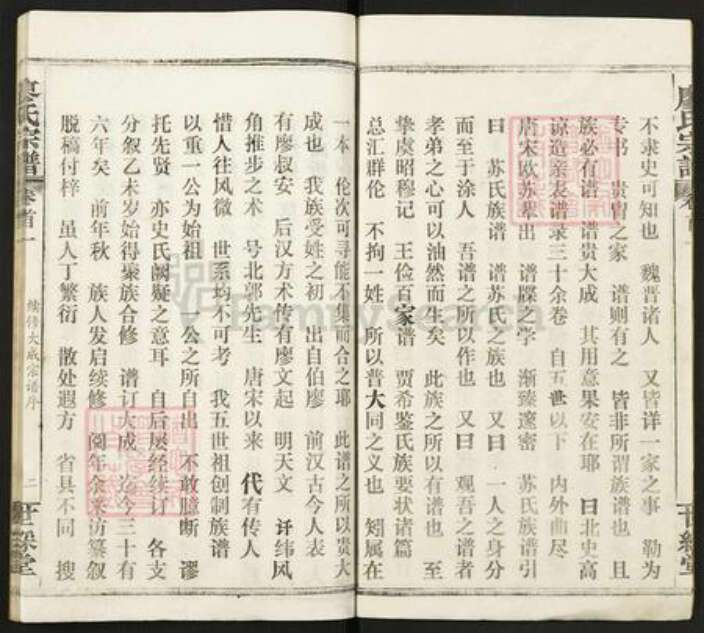 不隶史可知也 魏晋诸人 又皆详一家之事 勒为
专书 贵胄之家 谱则有之 皆非所谓族谱也 且
族必有谱 谱贵大成 其用意果安在耶 曰北史高
谅造亲表谱录三十余卷 自五世以下 内外曲尽
唐宋欧苏辈出 谱牒之学 渐臻邃密 苏氏族谱引
曰 苏氏族谱 谱苏氏之族也 又曰 一人之身分
而至于涂人 吾谱之所以作也 又曰 观吾之谱者
孝弟之心可以油然而生矣 此族之所以有谱也 至
挚虞昭穆记 王俭百家谱 贾希鉴氏族要状诸篇
总汇群伦 不拘一姓 所以普大同之义也 矧属在
一本 伦次可寻能不集而合之耶 此谱之所以贵大
成也 我族受姓之初 出自伯廖 前汉古今人表
有廖叔安 后汉方术传有廖文起 明天文 讦纬风
角推步之术 号北郭先生 唐宋以来 代有传人
惜人往风微 世系均不可考 我五世祖创制族谱
以重一公为始祖 一公之所自出 不敢臆断 谬
托先贤 亦史氏阙疑之意耳 自后屡经续订 各支
分叙乙未岁始得聚族合修 谱订大成 迄今三十有
六年矣 前年秋 族人发启续修 阅年余采访纂叙
脱稿付梓 虽人丁繁衍 散处遐方 省县不同 搜
廖氏宗谱
卷首一
续修大成宗谱序
二
世䌽堂
FamilySearch